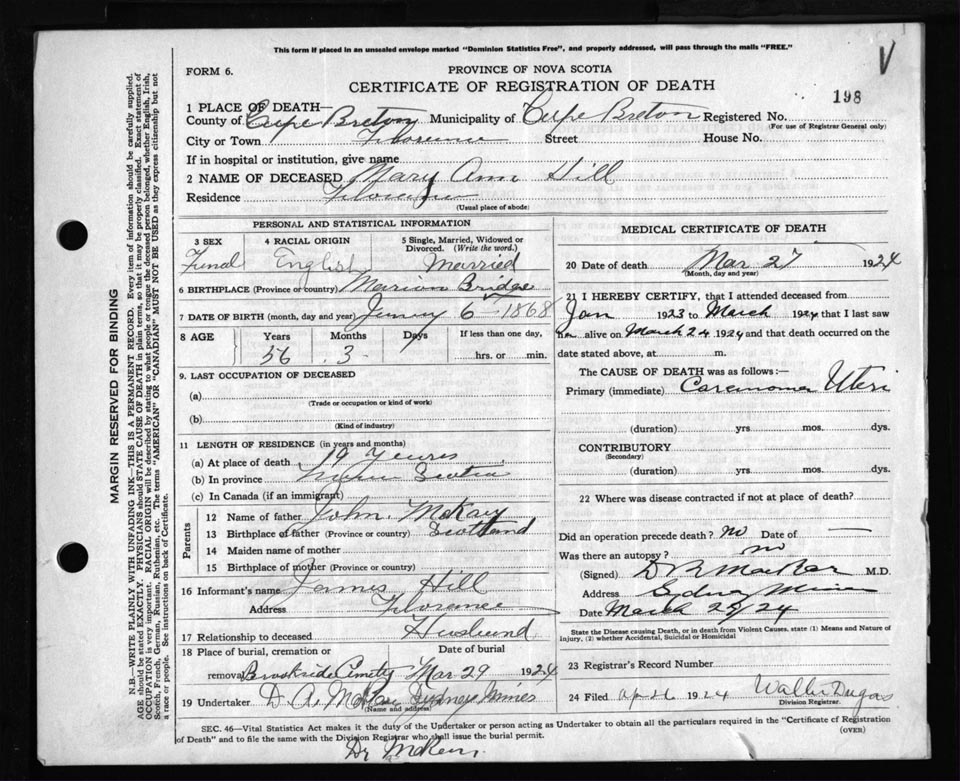 This form if placed in an unsealed envelope marked "Dominion Statistics Free", and properly addressed, will pass through the mails "FREE."
V
FORM 6.
PROVINCE OF NOVA SCOTIA
CERTIFICATE OF REGISTRATION OF DEATH
198
1 PLACE OF DEATH—
County of Cape Breton Municipality of Cape Breton Registered No.
(For use of Registrar General only)
City or Town Florence Street House No.
If in hospital or institution, give name
2 NAME OF DECEASED Mary Ann Hill
Residence Florence
(Usual place of abode)
PERSONAL AND STATISTICAL INFORMATION
3 SEX 4 RACIAL ORIGIN 5 Single, Married, Widowed or Divorced. (Write the word.)
Femal English Married
6 BIRTHPLACE (Province or country) Marion Bridge
7 DATE OF BIRTH (month, day and year) 6-1868
8 AGE Years Months Days If less than one day,
56 3 hrs. or min.
9. LAST OCCUPATION OF DECEASED
(a)
(Trade or occupation or kind of work)
(b)
(Kind of industry)
11 LENGTH OF RESIDENCE (in years and months)
(a) At place of death 19 Years
(b) In province Scotia
(c) In Canada (if an immigrant)
Parents
12 Name of father John McKay
13 Birthplace of father (Province or country) Scotland
14 Maiden name of mother
15 Birthplace of mother (Province or country)
16 Informant's name James Hill
Address Florence
17 Relationship to deceased Husbund
18 Place of burial, cremation or removal Date of burial
Brookside Cemety Mar 29 1924
19 Undertaker D. A. Sydney Mines
(Name and address)
MEDICAL CERTIFICATE OF DEATH
20 Date of death Mar 27 1924
(Month, day and year)
21 I HEREBY CERTIFY, that I attended deceased from
Jan 1923 to March 1924 that I last saw
her alive on March 24 1924 and that death occurred on the
date stated above, at m.
The CAUSE OF DEATH was as follows :—
Primary (immediate) Carcinoma Uteri
(duration) yrs. mos. dys.
CONTRIBUTORY
(Secondary)
(duration) yrs. mos. dys.
22 Where was disease contracted if not at place of death?
Did an operation precede death? no Date of —
Was there an autopsy? no
(Signed) M.D.
Address Sydney Mines
Date March 25/24
State the Disease causing Death, or in death from Violent Causes, state (1) Means and Nature of
Injury, (2) whether Accidental, Suicidal or Homicidal
23 Registrar's Record Number
24 Filed 1924 Dugas
Division Registrar.
SEC. 46—Vital Statistics Act makes it the duty of the Undertaker or person acting as Undertaker to obtain all the particulars required in the "Certificate of Registration
of Death" and to file the same with the Division Registrar who shall issue the burial permit.
(OVER)
Dr
MARGIN RESERVED FOR BINDING
N.B.—WRITE PLAINLY WITH UNFADING INK—THIS IS A PERMANENT RECORD. Every item of information should be carefully supplied.
AGE should be stated EXACTLY. PHYSICIANS should STATE CAUSE OF DEATH in plain terms, so that it may be properly classified. Exact statement of
OCCUPATION is very important. RACIAL ORIGIN will be described by stating to what people or tongue the deceased person belonged, whether English, Irish,
Scotch, French, German, Russian, Ruthenian, etc. The terms "AMERICAN" OR "CANADIAN" MUST NOT BE USED as they express citizenship but not
a race or people. See instructions on back of Certificate.